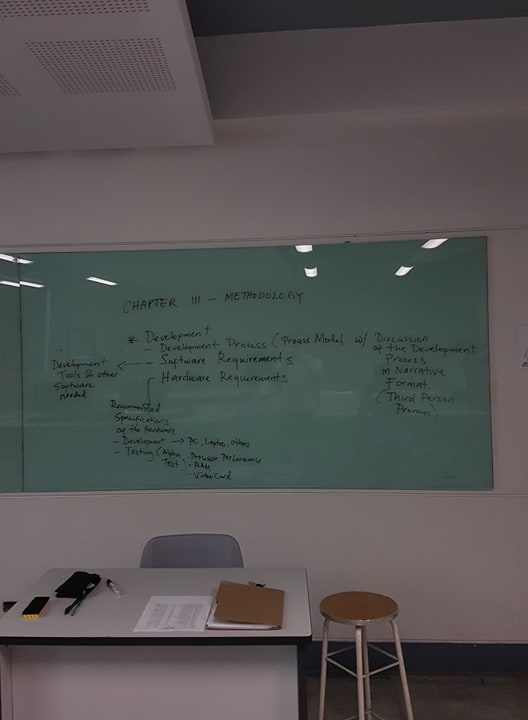 CHAPTER III - METHODOLOGY
* Development
- Development Process (Process Model w/ Discussion
of the Development
Process
in Narrative
Format
(Third Person
Pronoun)
- Software Requirements
Development
Tools & other
Software
needed
Hardware Requirements
Recommended
Specifications
of the Hardware
- Development → PC, Laptop, others
- Testing (Alpha
Test)
• Processor Performance
• RAM
• Video Card